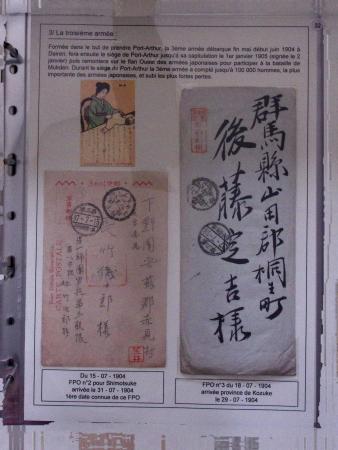 52
3/ La troisième armée :
Formée dans le but de prendre Port-Arthur, la 3ème armée débarque fin mai début juin 1904 à
Dairen, fera ensuite le siège de Port-Arthur jusqu'à sa capitulation le 1er janvier 1905 (signée le 2
janvier) puis remontera sur le flan Ouest des armées japonaises pour participer à la bataille de
Mukden. Durant le siège du Port-Arthur la 3ème armée a compté jusqu'à 100 000 hommes, la plus
importante des armées japonaises, et subi les plus fortes pertes.
群馬縣山田郡桐生町
後藤定吉様
CARTE POSTALE
下野國安蘇郡赤見村
Du 15 - 07 - 1904
FPO n°2 pour Shimotsuke
arrivée le 31 - 07 - 1904
1ère date connue de ce FPO
FPO n°3 du 18 - 07 - 1904
arrivée province de Kozuke
le 29 - 07 - 1904